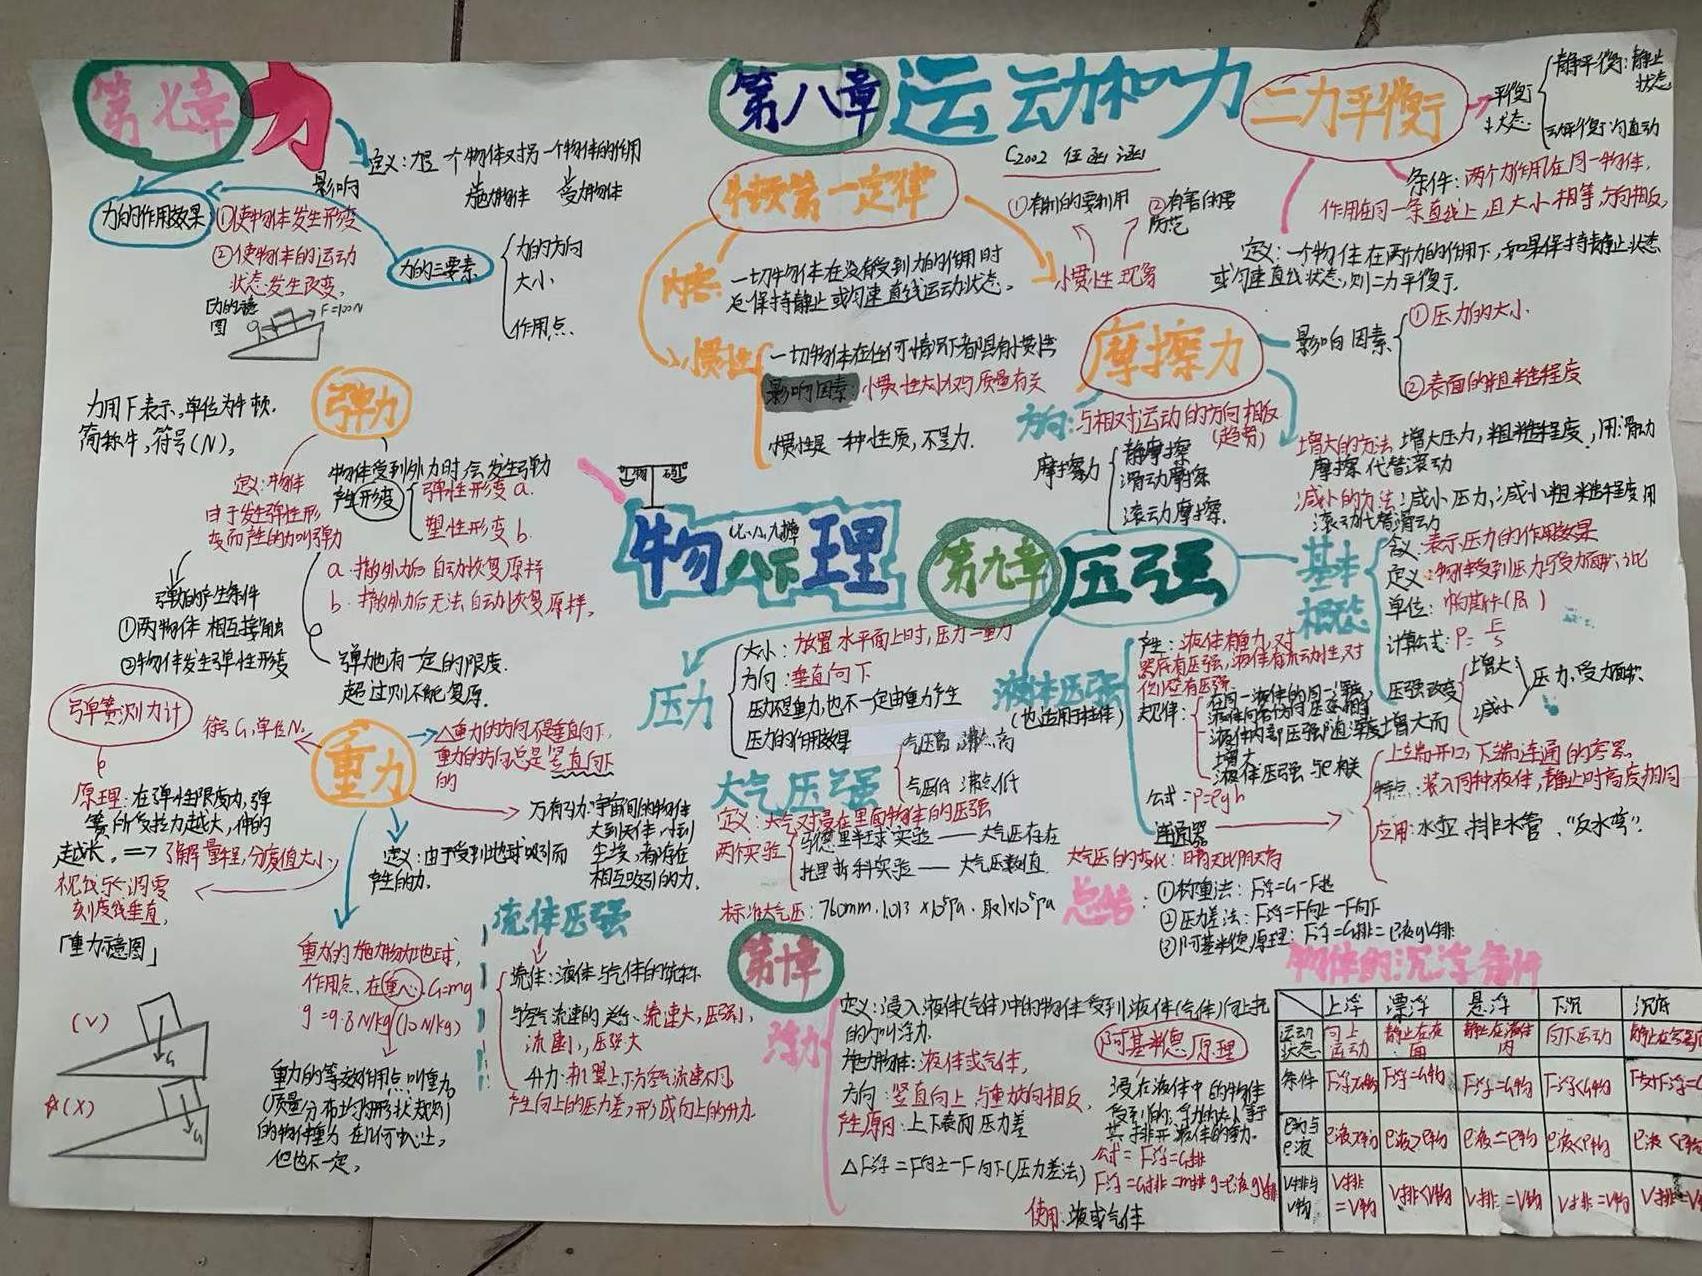 第七章 力
定义:力是一个物体对另一个物体的作用
施力物体 受力物体
影响
力的作用效果
①使物体发生形变
②使物体的运动
状态发生改变
力的三要素
力的方向
大小
作用点
F=100N
力用F表示,单位为牛顿.
简称牛,符号(N).
弹力
物体受到外力时,会发生弹力
产生形变
弹性形变 a.
塑性形变 b.
定义:物体
由于发生弹性形
变而产生的力叫弹力
a.撤外力后自动恢复原样
b.撤外力后无法自动恢复原样.
弹力的产生条件
①两物体相互接触
②物体发生弹性形变
弹力也有一定的限度.
超过则不能复原.
弹簧测力计
原理:在弹性限度内,弹
簧所受拉力越大,伸的
越长.
了解量程,分度值大小
视线 调零
刻度线垂直
「重力示意图」
(√)
G
(X)
G
重力
符号G,单位N.
△重力的方向不是垂直向下,
重力的方向总是竖直向下
的
万有引力:宇宙间的物体
大到天体,小到
尘埃,都存在
相互吸引的力.
定义:由于受到地球吸引而
产生的力.
重力的施力物为地球,
作用点,在重心 G=mg
g=9.8N/kg(10N/kg)
重力的等效作用点叫重心
(质量分布均匀形状规则
的物体重心在几何中心上,
但也不一定.
物理
七、八、九、十章
八下
第八章 运动和力
C2002
牛顿第一定律
内容:
一切物体在没有受到力的作用时
总保持静止或匀速直线运动状态.
惯性
一切物体在任何情况下都具有惯性
影响因素:惯性大小只与质量有关
惯性是一种性质,不是力.
惯性现象
①有利的要利用
②有害的要
防范
二力平衡
平衡
状态
静平衡:静止
状态
动平衡:匀直动
条件:两个力作用在同一物体,
作用在同一条直线上,且大小相等,方向相反,
定义:一个物体在两个力的作用下,如果保持静止状态
或匀速直线状态,则二力平衡.
摩擦力
影响因素
①压力的大小
②表面的粗糙程度
方向:与相对运动的方向相反
(趋势)
摩擦力
静摩擦
滑动摩擦
滚动摩擦.
增大的方法:增大压力,粗糙程度,用滑动
摩擦代替滚动
减小的方法:减小压力,减小粗糙程度用
滚动代替滑动
第九章 压强
基本
概念
含义:表示压力的作用效果
定义:物体受到压力与受力面积之比
单位:帕斯卡(Pa)
计算公式:P=F/S
压强改变
增大
减小
压力、受力面积
压力
大小:放置水平面上时,压力=重力
方向:垂直向下
压力不是重力,也不一定由重力产生
压力的作用效果
液体压强
(也适用于柱体)
产生:液体有重力,对
容器底有压强,液体有流动性,对
侧壁有压强
规律:
在同一液体的同一深度,
液体向各个方向的压强相等
液体内部压强随深度增大而
增大
液体压强与ρ有关
公式:P=ρgh
连通器
上端开口,下端连通的容器
特点:装入同种液体,静止时高度相同
应用:水壶、排水管、"反水弯".
大气压强
气压高 沸点高
气压低 沸点低
定义:大气对浸在里面物体的压强
两个实验
马德堡半球实验——大气压存在
托里拆利实验——大气压数值
大气压的变化:晴天比阴天高
标准大气压:760mm.1.013×10⁵Pa.取1×10⁵Pa
流体压强
流体:液体与气体的统称
与空气流速的关系:流速大,压强小,
流速小,压强大
升力:机翼上下方空气流速不同
产生向上的压力差,形成向上的升力.
总结:
①称重法:F浮=G-F拉
②压力差法:F浮=F向上-F向下
③阿基米德原理:F浮=G排=ρ液gV排
第十章
浮力
定义:浸入液体(气体)中的物体受到液体(气体)向上托
的力叫浮力.
施力物体:液体或气体,
方向:竖直向上与重力方向相反,
产生原因:上下表面压力差
△F浮=F向上-F向下(压力差法)
阿基米德原理
浸在液体中的物体
受到的浮力的大小等于
其排开液体的重力.
公式=F浮=G排
F浮=G排=m排g=ρ液gV排
使用:液或气体
物体的沉浮条件
上浮 漂浮 悬浮 下沉 沉底
运动状态 向上运动 静止在液面 静止在液体内 向下运动
条件 F浮>G物 F浮=G物 F浮=G物 F浮<G物
ρ物与ρ液 ρ液>ρ物 ρ液>ρ物 ρ液=ρ物 ρ液<ρ物
V排与V物 V排=V物 V排<V物 V排=V物 V排=V物